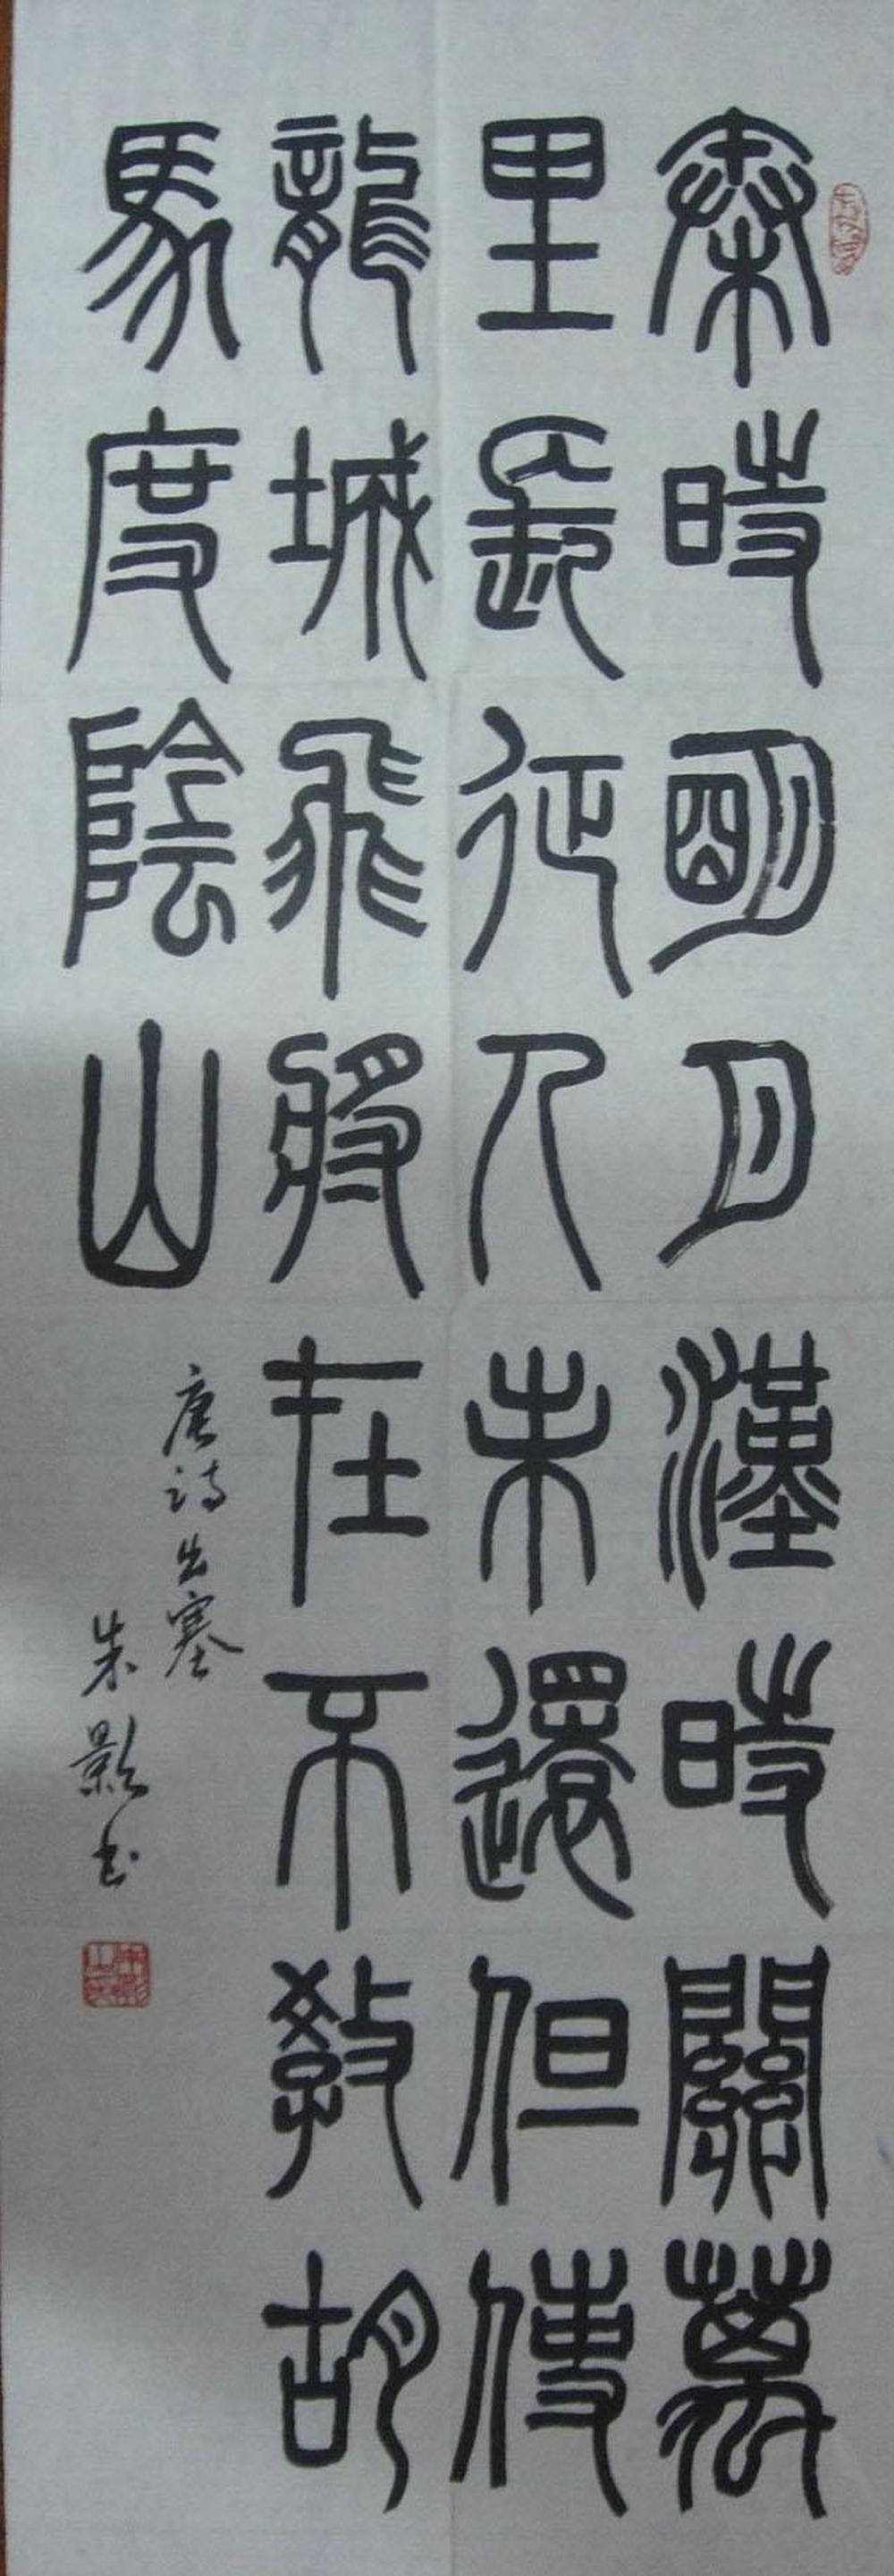 秦時明月漢時關萬
里長征人未還但使
龍城飛將在不教胡
馬度陰山
唐诗出塞
朱影书